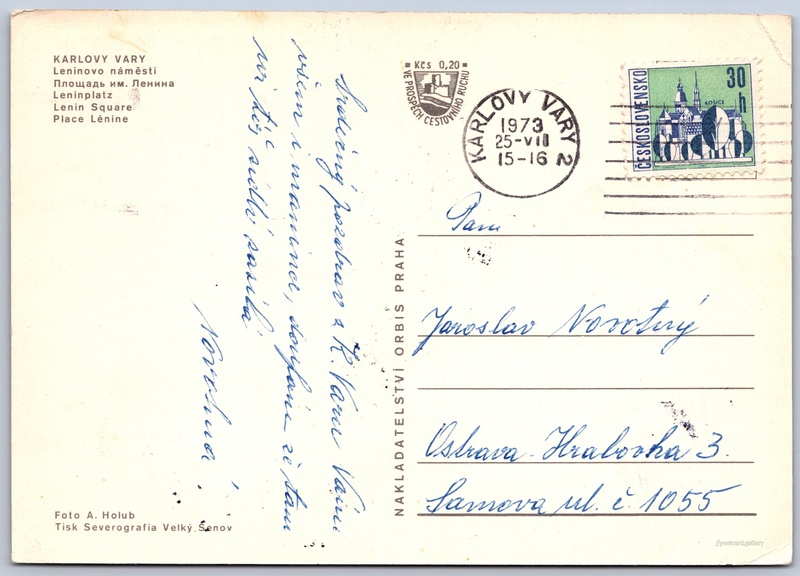 KARLOVY VARY
Leninovo náměstí
Площадь им. Ленина
Leninplatz
Lenin Square
Place Lénine
Srdečný pozdrav z K. Varů Vám
všem i mamince, doufám že tam
už
Novotná
Foto A. Holub
Tisk Severografia Velký Šenov
NAKLADATELSTVÍ ORBIS PRAHA
Kčs 0,20
VE PROSPĚCH CESTOVNÍHO RUCHU
KARLOVY VARY 2
1973
25-VII
15-16
ČESKOSLOVENSKO
30
h
KOŠICE
Pani
Jaroslav Novotný
Ostrava-Hrabůvka 3.
ul. č. 1055
@postcard.gallery